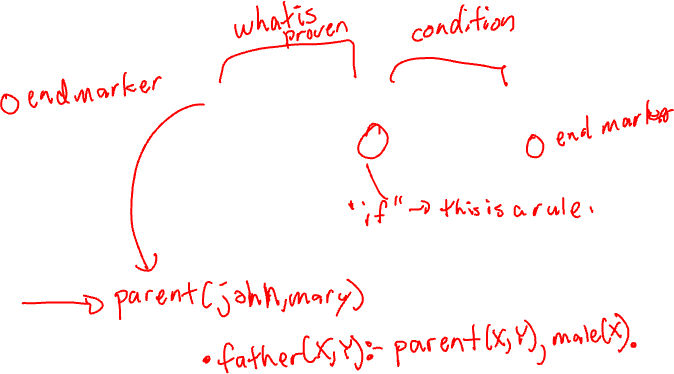 what is
proven
condition
end marker
end marker
"if" → this is a rule.
parent(john,mary)
• father(X,Y):- parent(X,Y), male(X).